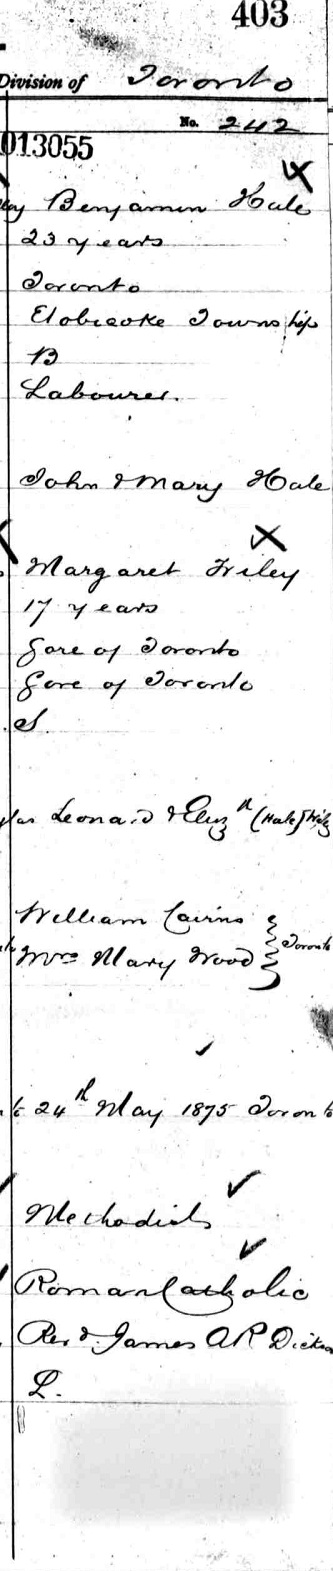 403
Division of Toronto
No. 242
013055
Benjamin Hale
23 years
Toronto
Etobicoke Township
B
Labourer.
John & Mary Hale
Margaret Wiley
17 years
Gore of Toronto
Gore of Toronto
S.
Leonard & Eliz th (Hale)
William Cairns
Mrs Mary Wood } Toronto
24th May 1875 Toronto
Methodist
Roman Catholic
Revd. James A R Dickson
L.